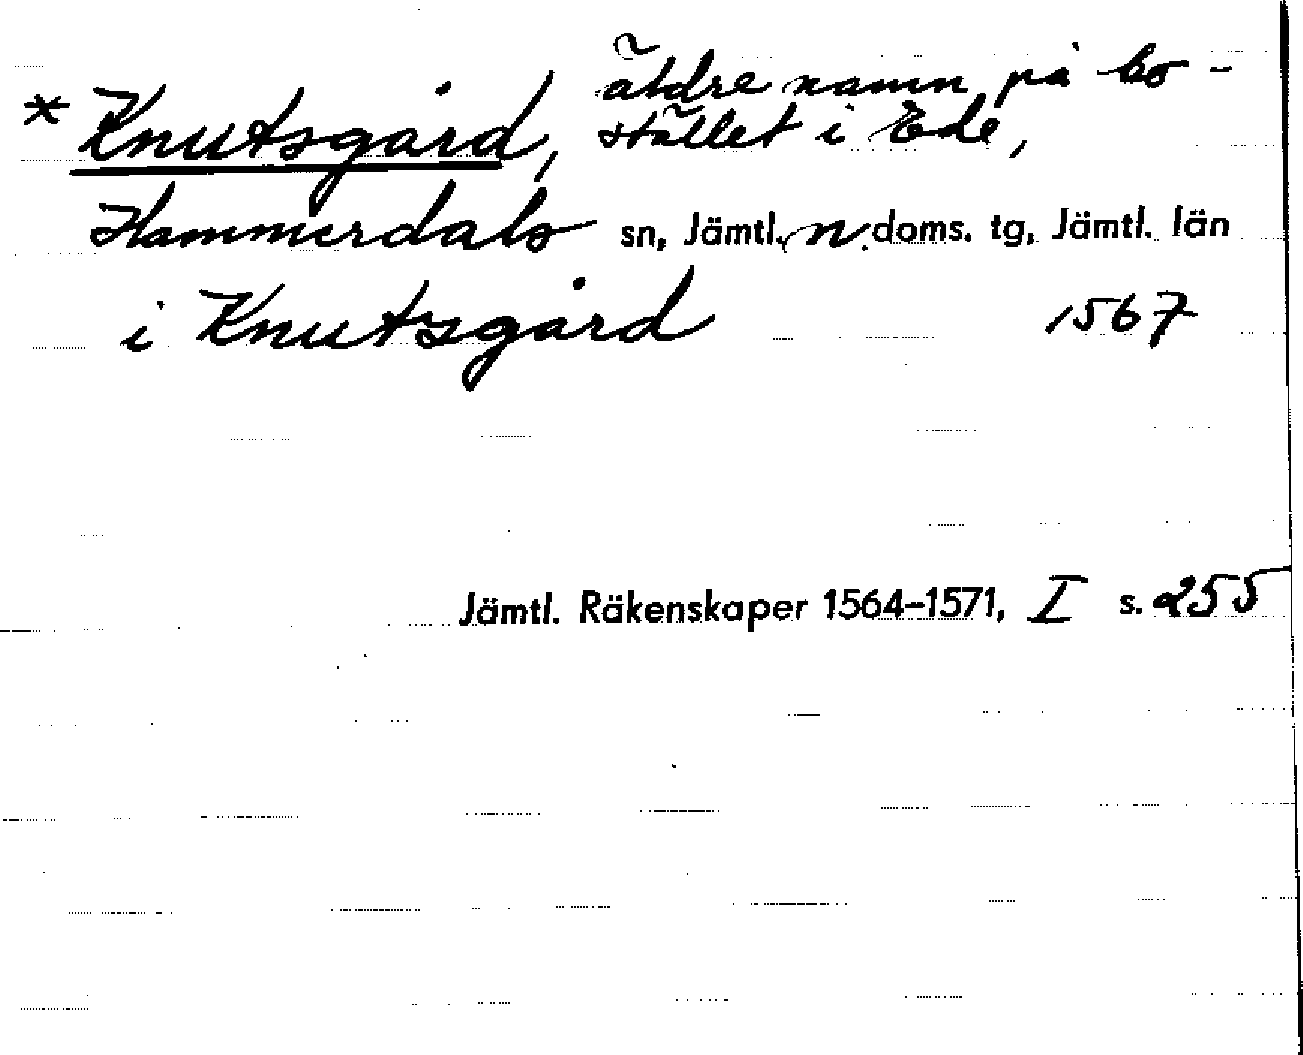 * Knutsgård, äldre namn på bo-
stället i Ede,
Hammerdals sn, Jämtl. n. doms. tg, Jämtl. län
i Knutsgård 1567
Jämtl. Räkenskaper 1564–1571, I s. 255